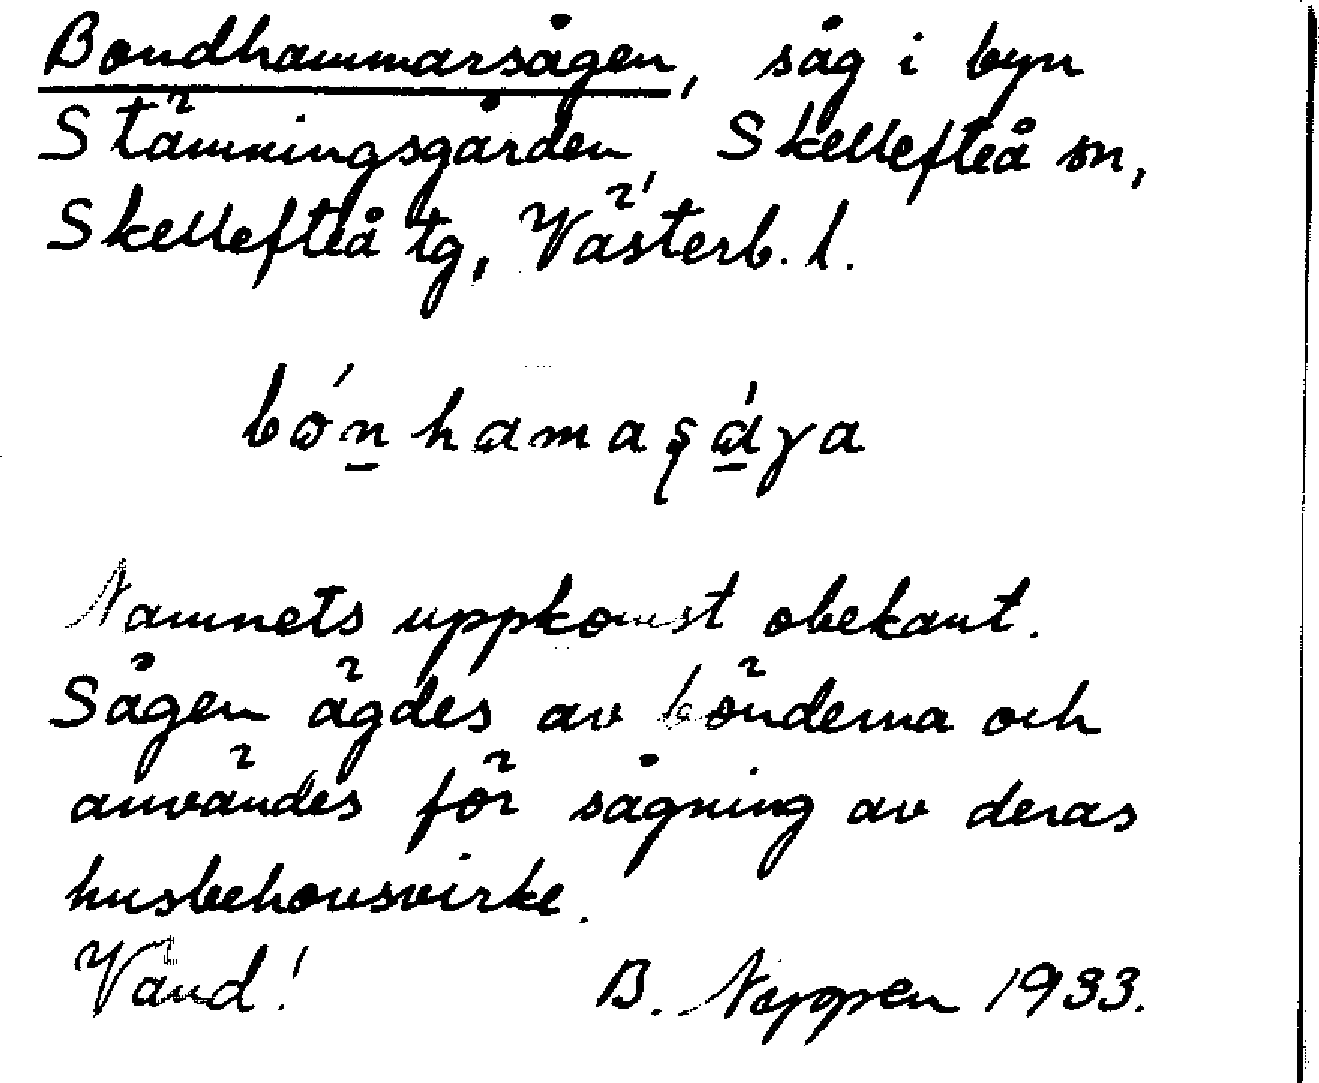 Bondhammarsågen, såg i byn
Stämningsgården, Skellefteå sn,
Skellefteå tg, Västerb. l.
bónhamaʂáγa
Namnets uppkomst obekant.
Sågen ägdes av bönderna och
användes för sågning av deras
husbehovsvirke.
Vänd! B. Nyppen 1933.